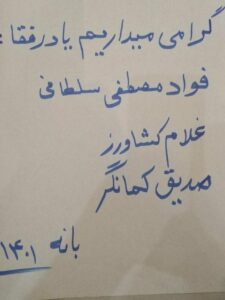 گرامی میداریم یاد رفقا:
فواد مصطفی سلطانی
غلام کشاورز
صدیق کمانگر
بانه ۱۴۰۱